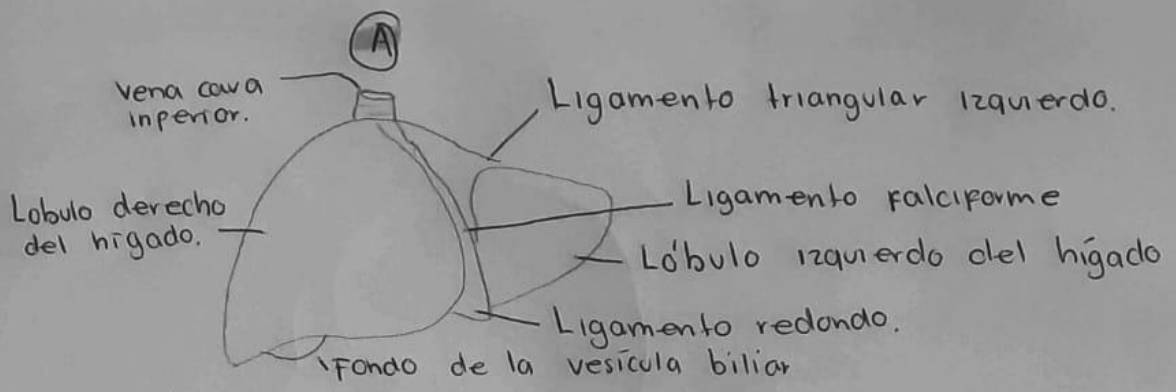 A
Vena cava
inperior.
Ligamento triangular izquierdo.
Lobulo derecho
del higado.
Ligamento falciforme
Lóbulo izquierdo del hígado
Ligamento redondo.
Fondo de la vesícula biliar